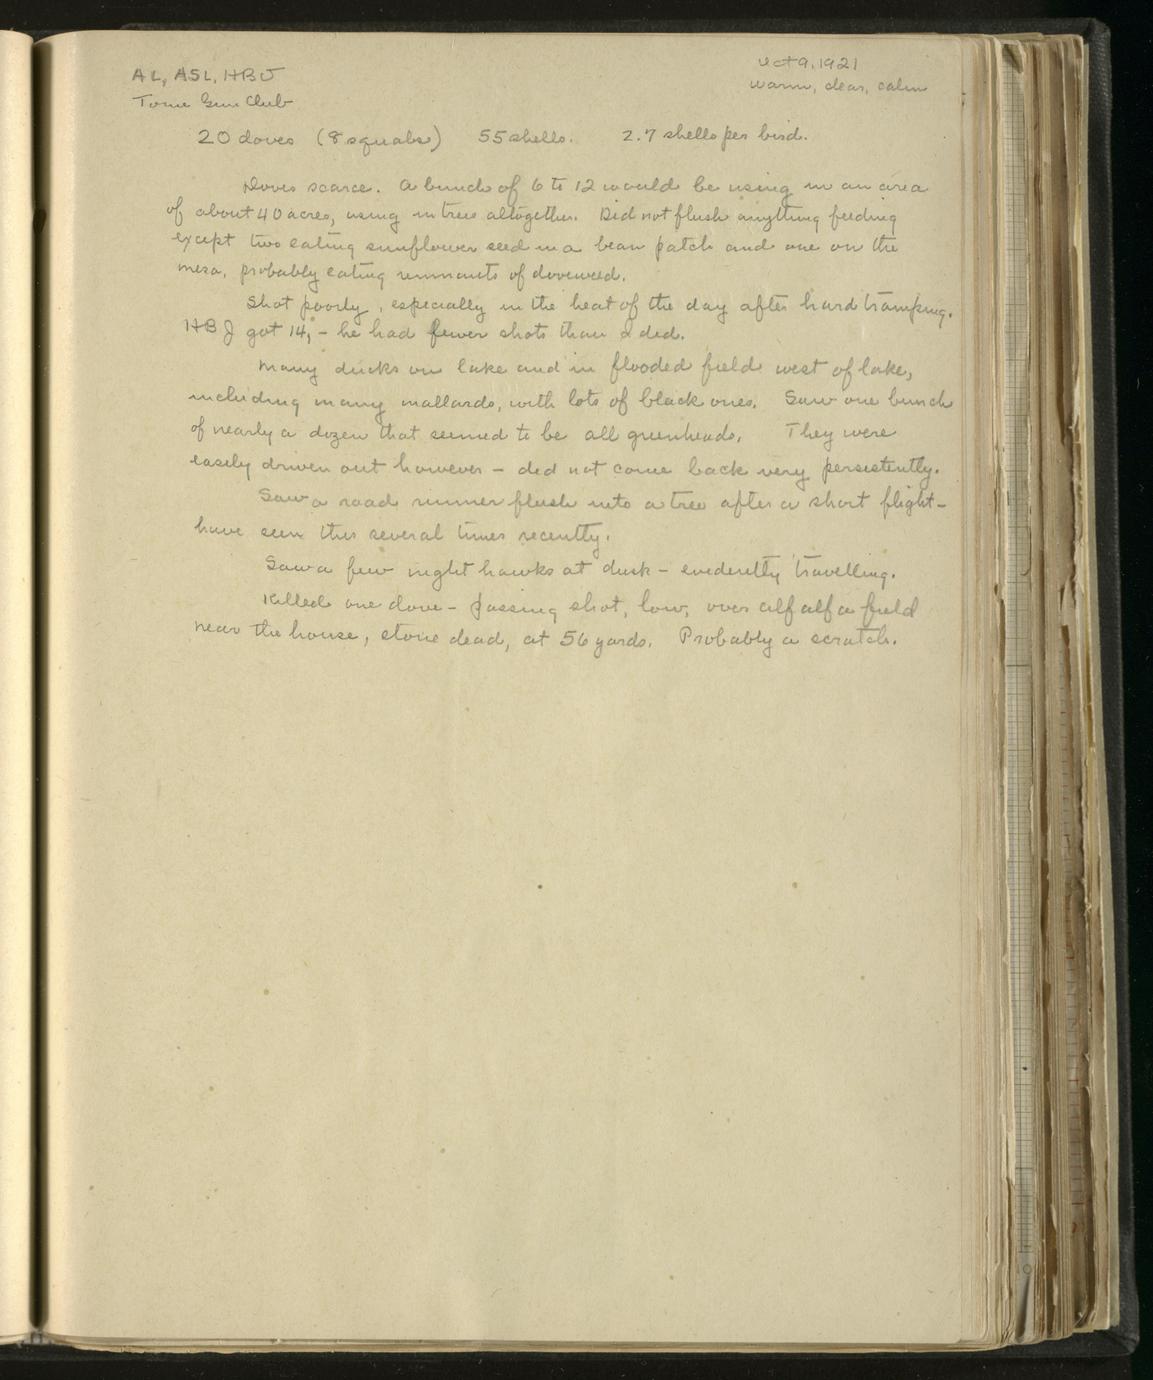 AL, ASL, HBJ
Oct 9, 1921
Tome Gun Club
warm, clear, calm
20 doves (8 squabs) 55 shells. 2.7 shells per bird.
Doves scarce. A bunch of 6 to 12 would be using in an area
of about 40 acres, using in trees altogether. Did not flush anything feeding
except two eating sunflower seed in a bean patch and one on the
mesa, probably eating remnants of doveweed.
Shot poorly, especially in the heat of the day after hard tramping.
HBJ got 14, - he had fewer shots than I did.
Many ducks on lake and in flooded field west of lake,
including many mallards, with lots of black ones. Saw one bunch
of nearly a dozen that seemed to be all greenheads. They were
easily driven out however - did not come back very persistently.
Saw a road runner flush into a tree after a short flight -
have seen this several times recently.
Saw a few night hawks at dusk - evidently travelling.
Killed one dove - passing shot, low, over alfalfa field
near the house, stone dead, at 56 yards. Probably a scratch.